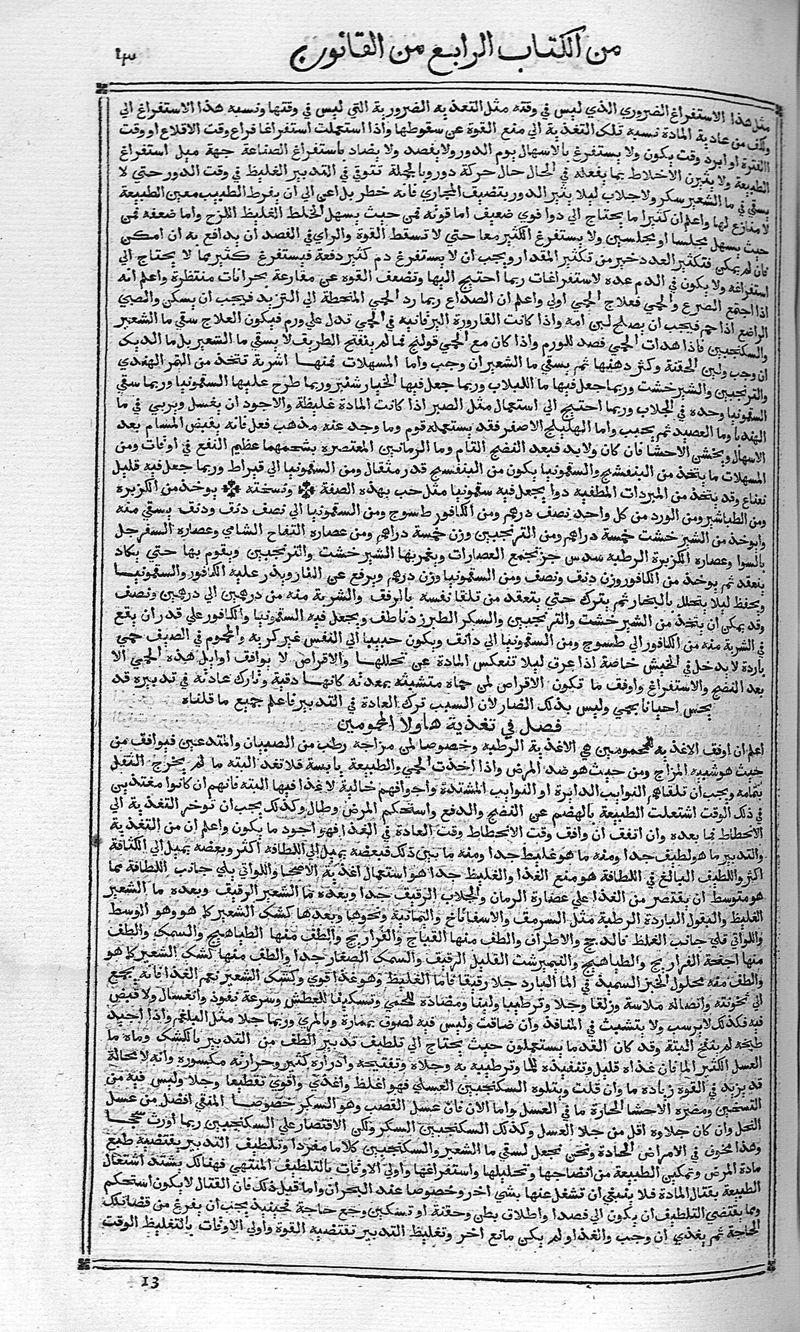 من الكتاب الرابع من القانون
١٣
مثل هذا الاستفراغ الضروري الذي ليس في وقته مثل التغذيه الضرورية التي ليس في وقتها ونسبه هذا الاستفراغ الي
وكف من عادية المادة نسبه تلك التغذية الي منع القوة عن سقوطها واذا استعملت استفراغا فراع وقت الاقلاع او وقت
الفترة او ابرد وقت يكون ولا يستفرغ بالاسهال يوم الدور ولا يفصد ولا يضاد باستفراغ الصناعة جهة ميل استفراغ
الطبيعة ولا يثيرن الاخلاط بما يفعله في الحال حال حركة دور وبالجملة تتوقي في التدبير الغليظ في وقت الدور حتي لا
يسقي في ما الشعير سكر ولا جلاب ليلا يثير الدور بتضيف المجاري فانه خطر بل اعي الي ان يفرط الطبيب معين الطبيعة
لا منازع لها واعلم ان كثيرا ما يحتاج الي دوا قوي ضعيف اما قوته فمن حيث يسهل الخلط الغليظ اللزج واما ضعفه فمن
حيث يسهل مجلسا او مجلسين ولا يستفرغ الكثير معا حتي لا تسقط القوة والراي في الفصد ان يدافع به ان امكن
فان لم يمكن فتكثير العدد خير من تكثير المقدار ويجب ان لا يستفرغ دم كثير دفعة فيستفرغ كثير مما لا يحتاج الي
استفراغه ولا يكون في الدم عده لاستفراغات ربما احتيج اليها وتضعف القوه عن مقارعة بحرانات منتظرة واعلم انه
اذا اجتمع الصرع والحمي فعلاج الحمي اولي واعلم ان الصداع ربما رد الحمي المنحطة الي التزيد فيجب ان يسكن والصبي
الراضع اذا حم فيجب ان يصلح لبن امه واذا كانت القارورة اليرقانيه في الحمي تدل علي ورم فيكون العلاج سقي ما الشعير
والسكنجبين فاذا هدات الحمي فصد للورم واذا كان مع الحمي قولنج فما لم ينفتح الطريق لا يسقي ما الشعير بل ما الديك
ان وجب ولين الحقنة وكثر دهنيها ثم يسقي ما الشعير ان وجب واما المسهلات فمنها اشربة تتخذ من التمر الهندي
والترنجبين والشيرخشت وربما جعل فيها ما اللبلاب وربما جعل فيها الخيارشنبر وربما طرح عليها السقمونيا وربما سقي
السقمونيا وحده في الجلاب وربما احتيج الي استعمال مثل الصبر اذا كانت المادة غليظة والاجود ان يغسل ويربي في ما
الهندبا وما العصيد ثم يحبب واما الهليلج الاصفر فقد يستعمله قوم وما وجد عنه مذهب فعل فانه يقبض المسام بعد
الاسهال ويخشن الاحشا فان كان ولا بد فبعد النضج التام وما الرمانين المعتصره بشحمهما عظيم النفع في اوقات ومن
المسهلات ما يتخذ من البنفسج والسقمونيا يكون من البنفسج قدر مثقال ومن السقمونيا الي قيراط وربما جعل فيه قليل
نعناع وقد يتخذ من المبردات المطفيه دوا يجعل فيه سقمونيا مثل حب بهذه الصفة ونسخته يوخذ من الكزبره
ومن الطباشير ومن الورد من كل واحد نصف درهم ومن الكافور طسوج ومن السقمونيا الي نصف دنف ودنف يسقي منه
وايوخذ من الشيرخشت خمسة دراهم ومن الترنجبين وزن خمسة دراهم ومن عصاره التفاح الشامي وعصاره السفرجل
بالسوا وعصاره الكزبرة الرطبه سدس جز يجمع العصارات ويثمر بها الشيرخشت والترنجبين ويقوم بها حتي يكاد
ينعقد ثم يوخذ من الكافور وزن دنف ونصف ومن السقمونيا وزن درهم ويرفع عن النار ويذر عليه الكافور والسقمونيا
ويحفظ ليلا يتحلل بالبخار ثم يترك حتي ينعقد من تلقا نفسه بالرفق والشربة منه من درهمين الي درهمين ونصف
وقد يمكن ان يتخذ من الشيرخشت والترنجبين والسكر الطبرزد ناطف ويجعل فيه السقمونيا والكافور علي قدر ان يقع
في الشربة منه من الكافور الي طسوج ومن السقمونيا الي دانف ويكون حبيبا الي النفس غير كريه والمحموم في الصيف حمي
باردة لا يدخل في الخيش خاصة اذا عرق ليلا تنعكس المادة عن تحللها والاقراص لا يوافق اوايل هذه الحمي الا
بعد النضج والاستفراغ واوفق ما تكون الاقراص لمن حماه متشبثه بمعدته كانها دقية وتارك عادته في تدبيره قد
يحس احيانا بحمي وليس بذلك الضار لان السبب ترك العادة في التدبير فاعلم جميع ما قلناه
فصل في تغذية هاولا المحمومين
اعلم ان اوفق الاغذيه للمحمومين هي الاغذية الرطبه وخصوصا لمن مزاجه رطب من الصبيان والمتدعين فيوافق من
حيث هو شبيه المزاج ومن حيث هو ضد المرض واذا اخذت الحمي والطبيعة يابسة فلا تغذ البته ما لم يخرج الثفل
بتمامه ويجب ان تلقاهم النوايب الدايرة او النوايب المشتدة واجوافهم خالية لا غذا فيها البته فانهم ان كانوا مغتذيين
في ذلك الوقت اشتغلت الطبيعة بالهضم عن النضج والدفع واستحكم المرض وطال وكذلك يجب ان توخر التغذية الي
الانحطاط فما بعده وان اتفق ان وافق وقت الانحطاط وقت العادة في الغذا فهو اجود ما يكون واعلم ان من التغذية
والتدبير ما هو لطيف جدا ومنه ما هو غليظ جدا ومنه ما بين ذلك فبعضه يميل الي اللطافه اكثر وبعضه يميل الي الكثافة
اكثر واللطيف البالغ في اللطافة هو منع الغذا والغليظ جدا هو استعمال اغذية الاصحا واللواتي يلي جانب اللطافة مما
هو متوسط ان يقتصر من الغذا علي عصارة الرمان والجلاب الرقيق جدا وبعده ما الشعير الرقيق وبعده ما الشعير
الغليظ والبقول الباردة الرطبة مثل السرمق والاسفاناخ واليمانية ونحوها وبعدها كشك الشعير كما هو وهو الوسط
واللواتي تلي جانب الغلظ فالدجاج والاطراف والطف منها القباج والفراريج والطف منها الطياهيج والسمك والطف
منها اجنحة الفراريج والطياهيج والنيمبرشت القليل الرقيق والسمك الصغار جدا والطف منها كشك الشعير كما هو
والطف منه محلول الخبز السميد في الما البارد حلا رقيقا فاما الغليظ وهو غذا قوي وكشك الشعير نعم الغذا فانه يجمع
الي ثخونته واتصاله ملاسة وزلقا وجلا وترطيبا ولينا ومضادة للحمي وتسكينا للعطش وسرعة نفوذ وانغسال ولا قبض
فيه فلذلك لا يرسب ولا يتشبث في المنافذ وان ضاقت وليس فيه لصوق بمماره وبالمري وربما جلا مثل البلغم واذا اجيد
طبخه لم ينفخ البتة وقد كان القدما يستعملون حيث يحتاج الي تلطيف تدبير الطف من التدبير بالكشك وماه ما
العسل الكثير الما فان غذاه قليل وتنفيذه للما وترطيبه به وجلاه وتفتيحه وادراره كثير وحرارته مكسوره وانه لا محالة
قد يزيد في القوة زياده ما وان قلت ويتلوه السكنجبين العسلي فهو اغلظ واغذي واقوي تقطيعا وجلا وليس فيه من
التسخين ومضره الاحشا الحارة ما في العسل واما الان فان عسل القصب وهو السكر خصوصا المنقي افضل من عسل
النحل وان كان جلاوه اقل من جلا العسل وكذلك السكنجبين السكري ولكن الاقتصار علي السكنجبين ربما اورث سحجا
وهذا مخوف في الامراض الحادة ونحن نجعل لسقي ما الشعير والسكنجبين كلاما مفردا وتلطيف التدبير يقتضيه طبع
مادة المرض وتمكين الطبيعة من انضاجها وتحليلها واستفراغها واولي الاوقات بالتلطيف المنتهي فهنالك يشتد اشتغال
الطبيعة بقتال المادة فلا ينبغي ان تشغل عنها بشي اخر وخصوصا عند البحران واما قبل ذلك فان القتال لا يكون استحكم
ومما يقتضي التلطيف ان يكون الي فصد او اطلاق بطن وحقنة او تسكين وجع حاجة فحينيذ يجب ان يفرغ من قضا تلك
الحاجة ثم يغذي ان وجب الغذا ولم يكن مانع اخر وتغليظ التدبير تقتضيه القوة واولي الاوقات بالتغليظ الوقت
13